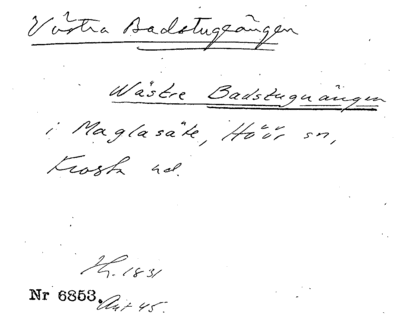 Västra Badstugeängen
Wästre Badstuguängen
i Maglasäte, Höör sn,
Frosta hd.
Hh. 1831
Nr 6853. Akt 45.